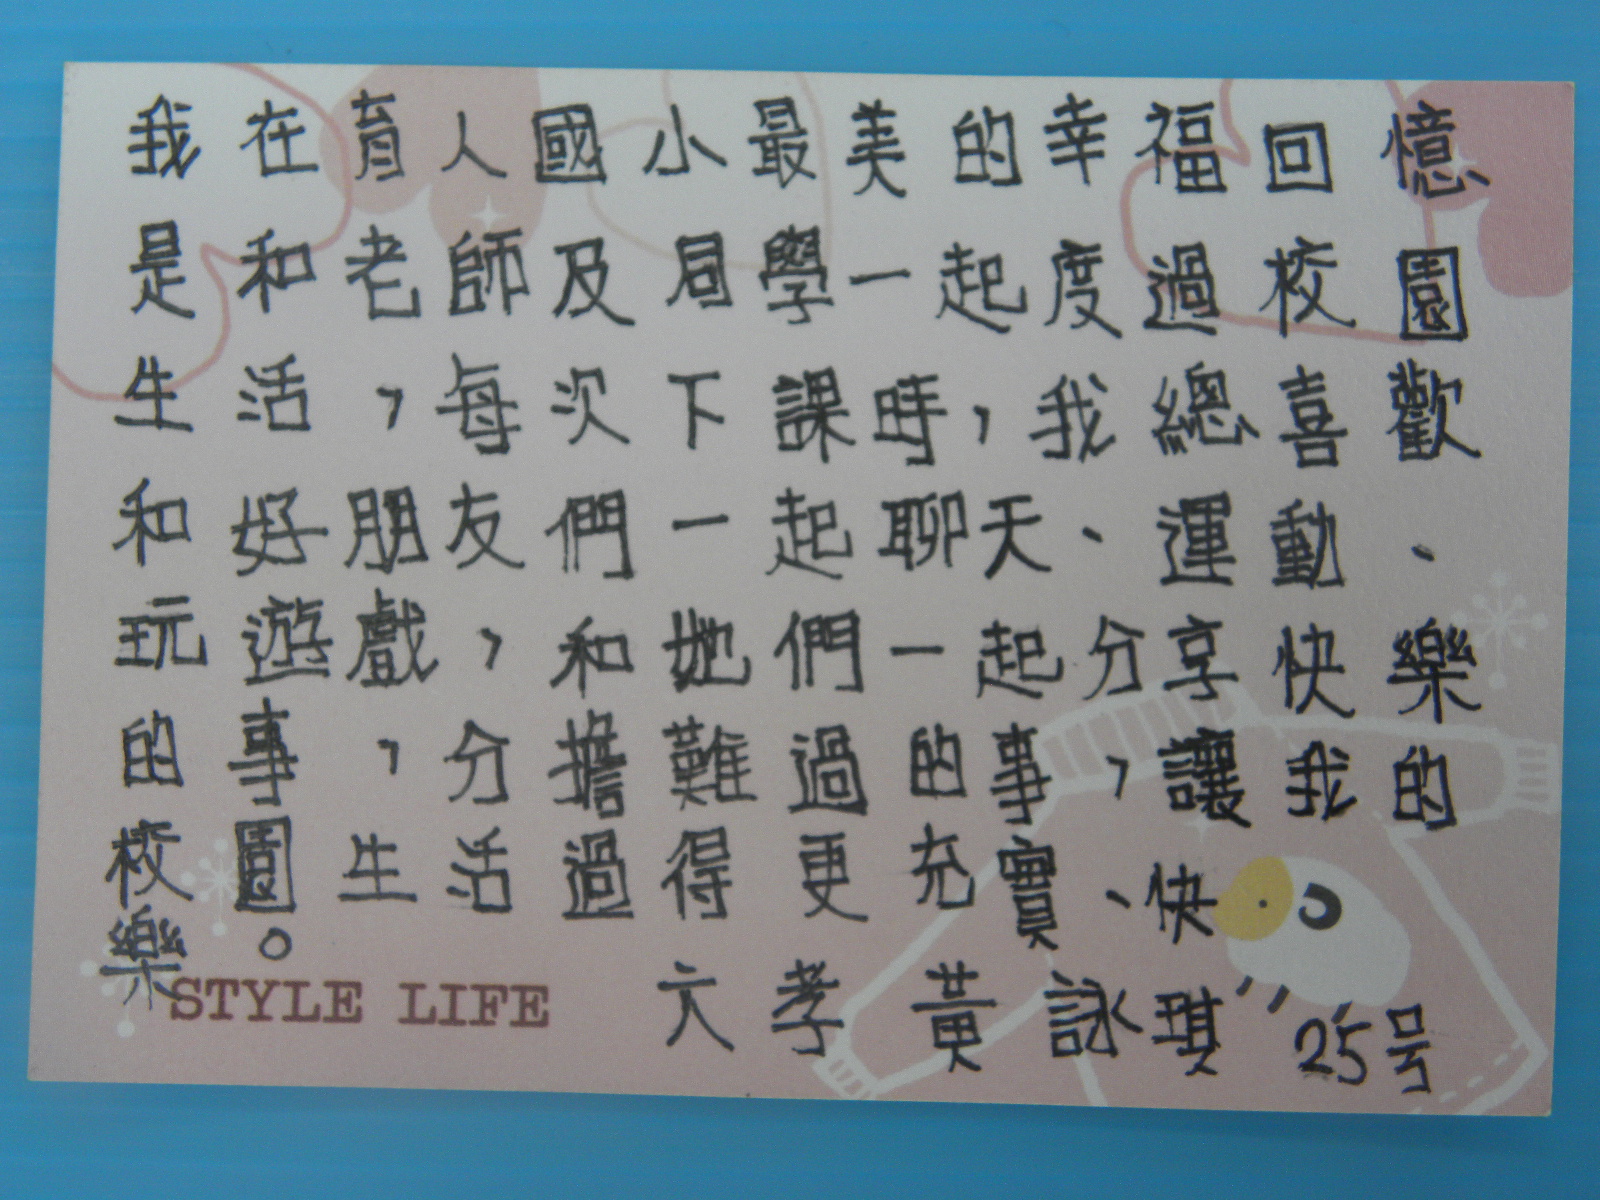 我在育人國小最美的幸福回憶
是和老師及同學一起度過校園
生活，每次下課時，我總喜歡
和好朋友們一起聊天、運動、
玩遊戲，和她們一起分享快樂
的事，分擔難過的事，讓我的
校園生活過得更充實、快
樂。
STYLE LIFE
六孝 黃詠琪 25号